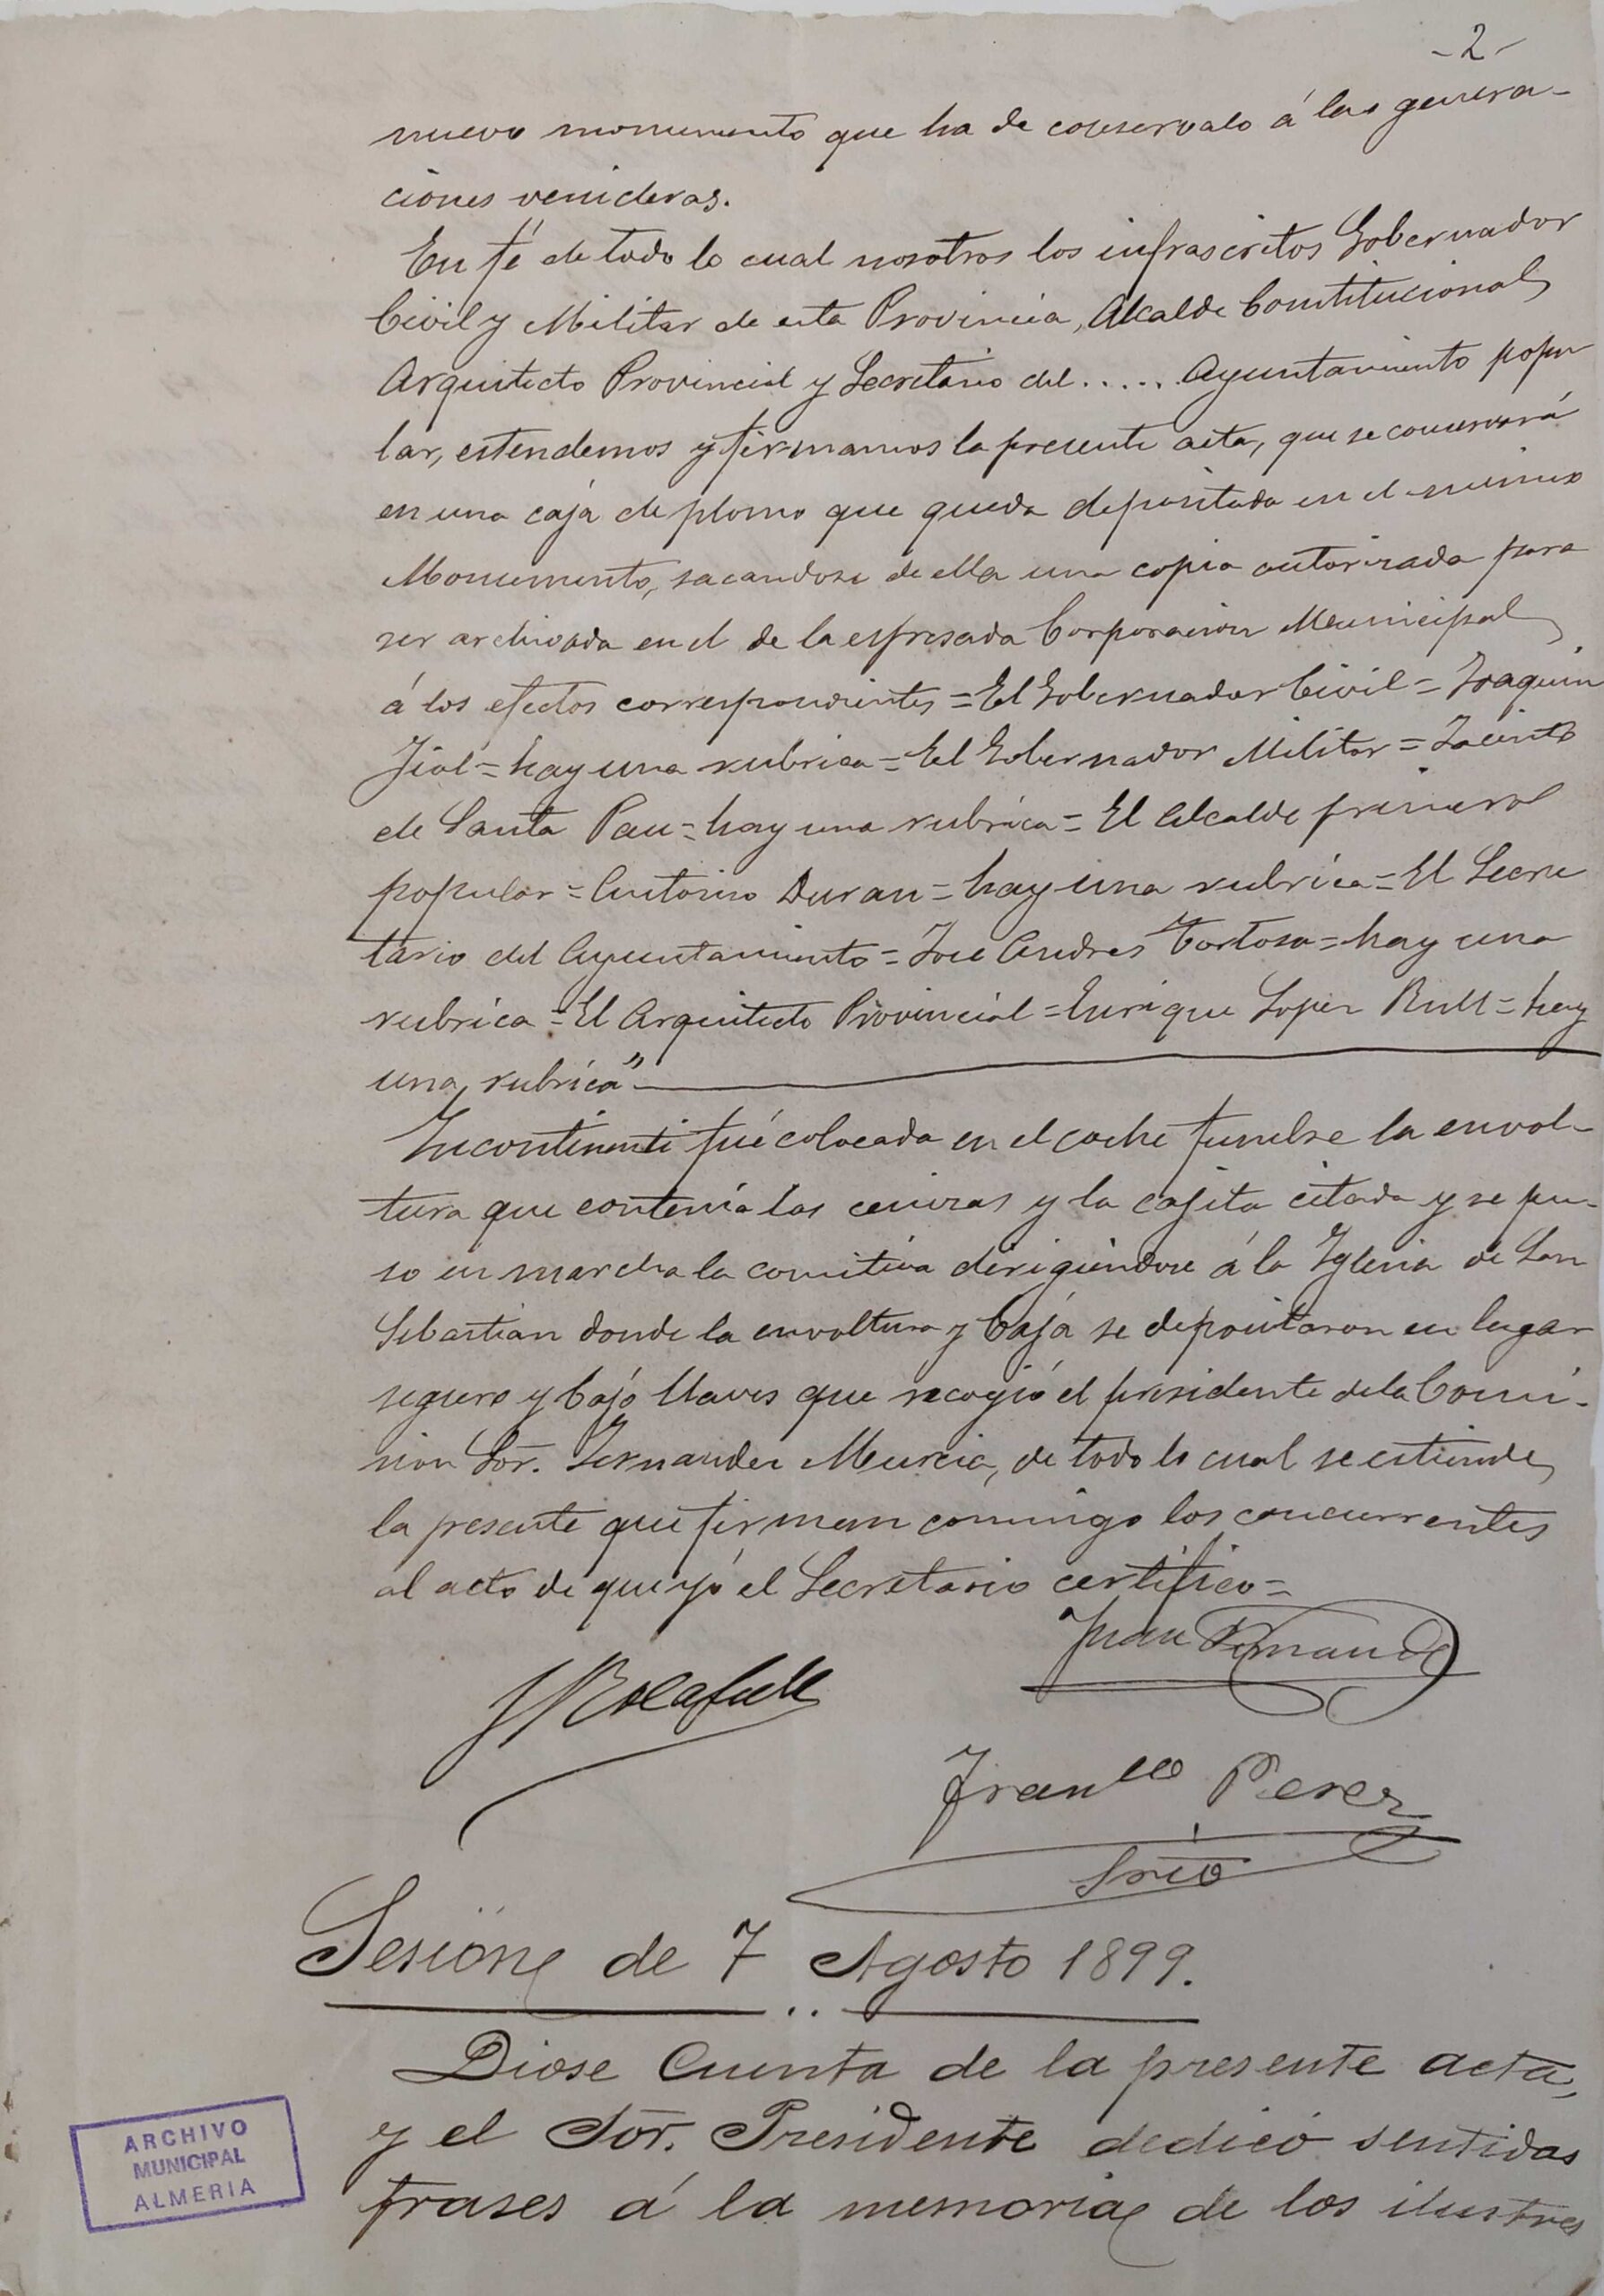 - 2 -
nuevo monumento que ha de conservalo á las genera-
ciones venideras.
En fé de todo lo cual nosotros los infrascritos Gobernador
Civil y Militar de esta Provincia, Alcalde Constitucional,
Arquitecto Provincial y Secretario del ..... Ayuntamiento popu
lar, estendemos y firmamos la presente acta, que se conservará
en una caja de plomo que queda depositada en el mismo
Monumento, sacandose de ella una copia autorizada para
ser archivada en el de la espresada Corporacion Municipal
á los efectos correspondientes = El Gobernador Civil = Joaquin
Fiol = hay una rubrica = El Gobernador Militar = Jacinto
de Santa Pau = hay una rubrica = El Alcalde primero
popular = Antonio Duran = hay una rubrica = El Secre
tario del Ayuntamiento = Jose Andres Tortosa = hay una
rubrica = El Arquitecto Provincial = Enrique Lopez Rull = hay
una rubrica"
Incontinenti fué colocada en el coche funebre la envol-
tura que contenia las cenizas y la cajita citada y se pu-
so en marcha la comitiva dirigiendose á la Iglesia de San
Sebastian donde la envoltura y Caja se depositaron en lugar
seguro y bajo llaves que recogió el presidente de la Comi-
sion Sor. Fernandez Murcia, de todo lo cual se estiende
la presente que firman conmigo los concurrentes
al acto de que yó el Secretario certifico =
Juan Fernandez
Franco Perez
Srio
Sesion de 7 Agosto 1899.
Diose Cuenta de la presente acta,
y el Sor. Presidente dedicó sentidas
frases á la memoria de los ilustres
ARCHIVO
MUNICIPAL
ALMERIA